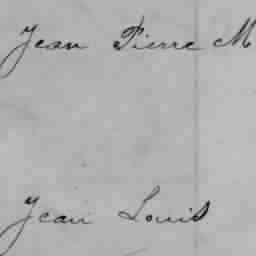 Jean Pierre M
Jean Louis